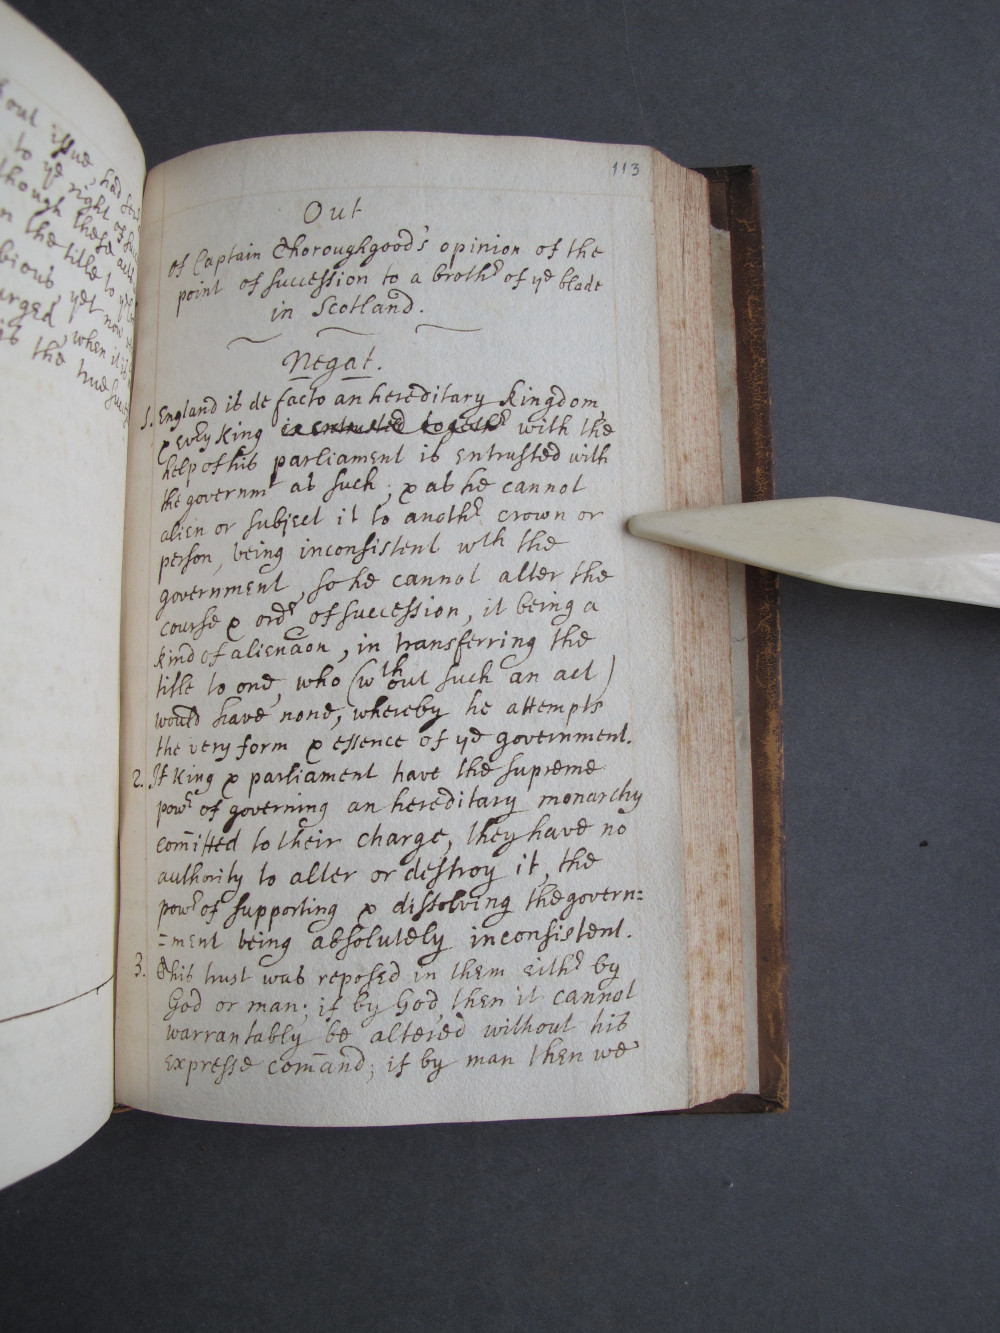 out issue, had
to ye right of
though these
n the title to
bious, yet now
urged, when it is
is the true
113
Out
of Captain Thoroughgood's opinion of the
point of succession to a brothr of ye blade
in Scotland.
Negat.
1. England is de facto an hereditary kingdom,
& every King is entrusted togethr with the
help of his parliament is entrusted with
the governmt as such; & as he cannot
alien or subject it to anothr crown or
person, being inconsistent wth the
government, so he cannot alter the
course & ordr of succession, it being a
kind of alienaon, in transferring the
title to one, who (wthout such an act)
would have none, whereby he attempts
the very form & essence of ye government.
2. If King & parliament have the supreme
powr of governing an hereditary monarchy
com̄itted to their charge, they have no
authority to alter or destroy it, the
powr of supporting & dissolving the govern=
=ment being absolutely inconsistent.
3. This trust was reposed in them eithr by
God or man; if by God, then it cannot
warrantably be altered without his
expresse com̄and; if by man then we